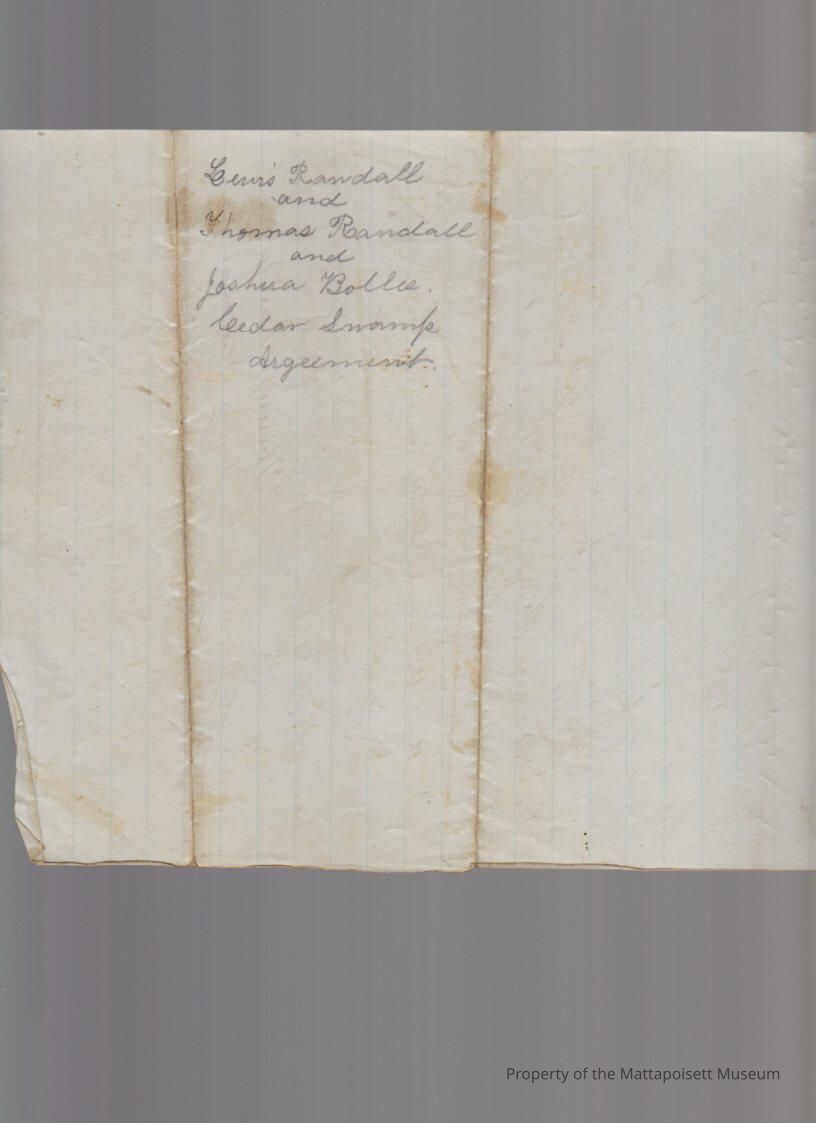 Lewis Randall
and
Thomas Randall
and
Joshua Bolles.
Cedar Swamp
Argeement.
Property of the Mattapoisett Museum